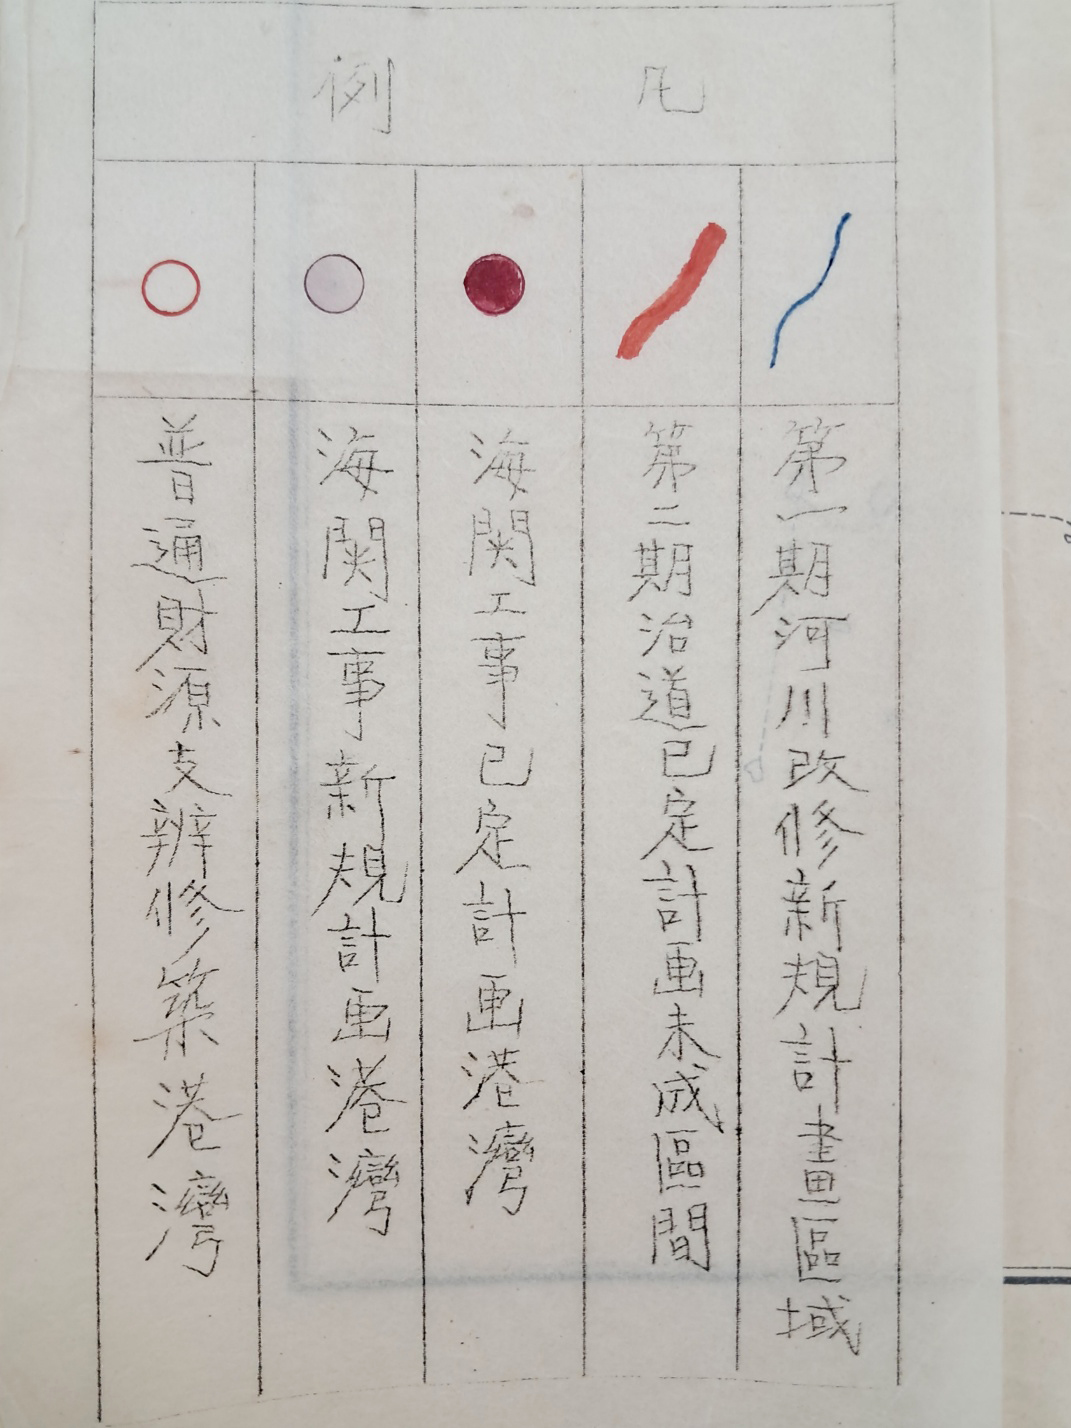 凡例
第一期河川改修新規計畫區域
第二期治道已定計画未成區間
海関工事已定計画港灣
海関工事新規計画港灣
普通財源支辨修築港灣